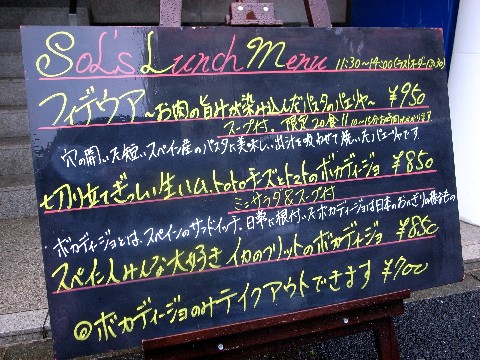 SoL's Lunch Menu 11:30〜14:00(ラストオーダー13:30)
フィデウア〜お肉の旨汁が染み込んだパスタのパエリヤ〜 ¥950
スープ付。限定20食!! 10〜15分お時間かかります
穴の開いた短いスペイン産のパスタに美味しい出汁を吸わせて焼いたパエリヤです。
切り立てぎっしり生ハム、トロトロチーズとトマトのボカディージョ ¥850
ミニサラダ&スープ付
ボカディージョとは、スペインのサンドイッチ。日常に根付いたボカディージョは日本のおにぎりの様なもの
スペイン人みんな大好き イカのフリットのボカディージョ ¥850
◎ボカディージョのみテイクアウトできます ¥700